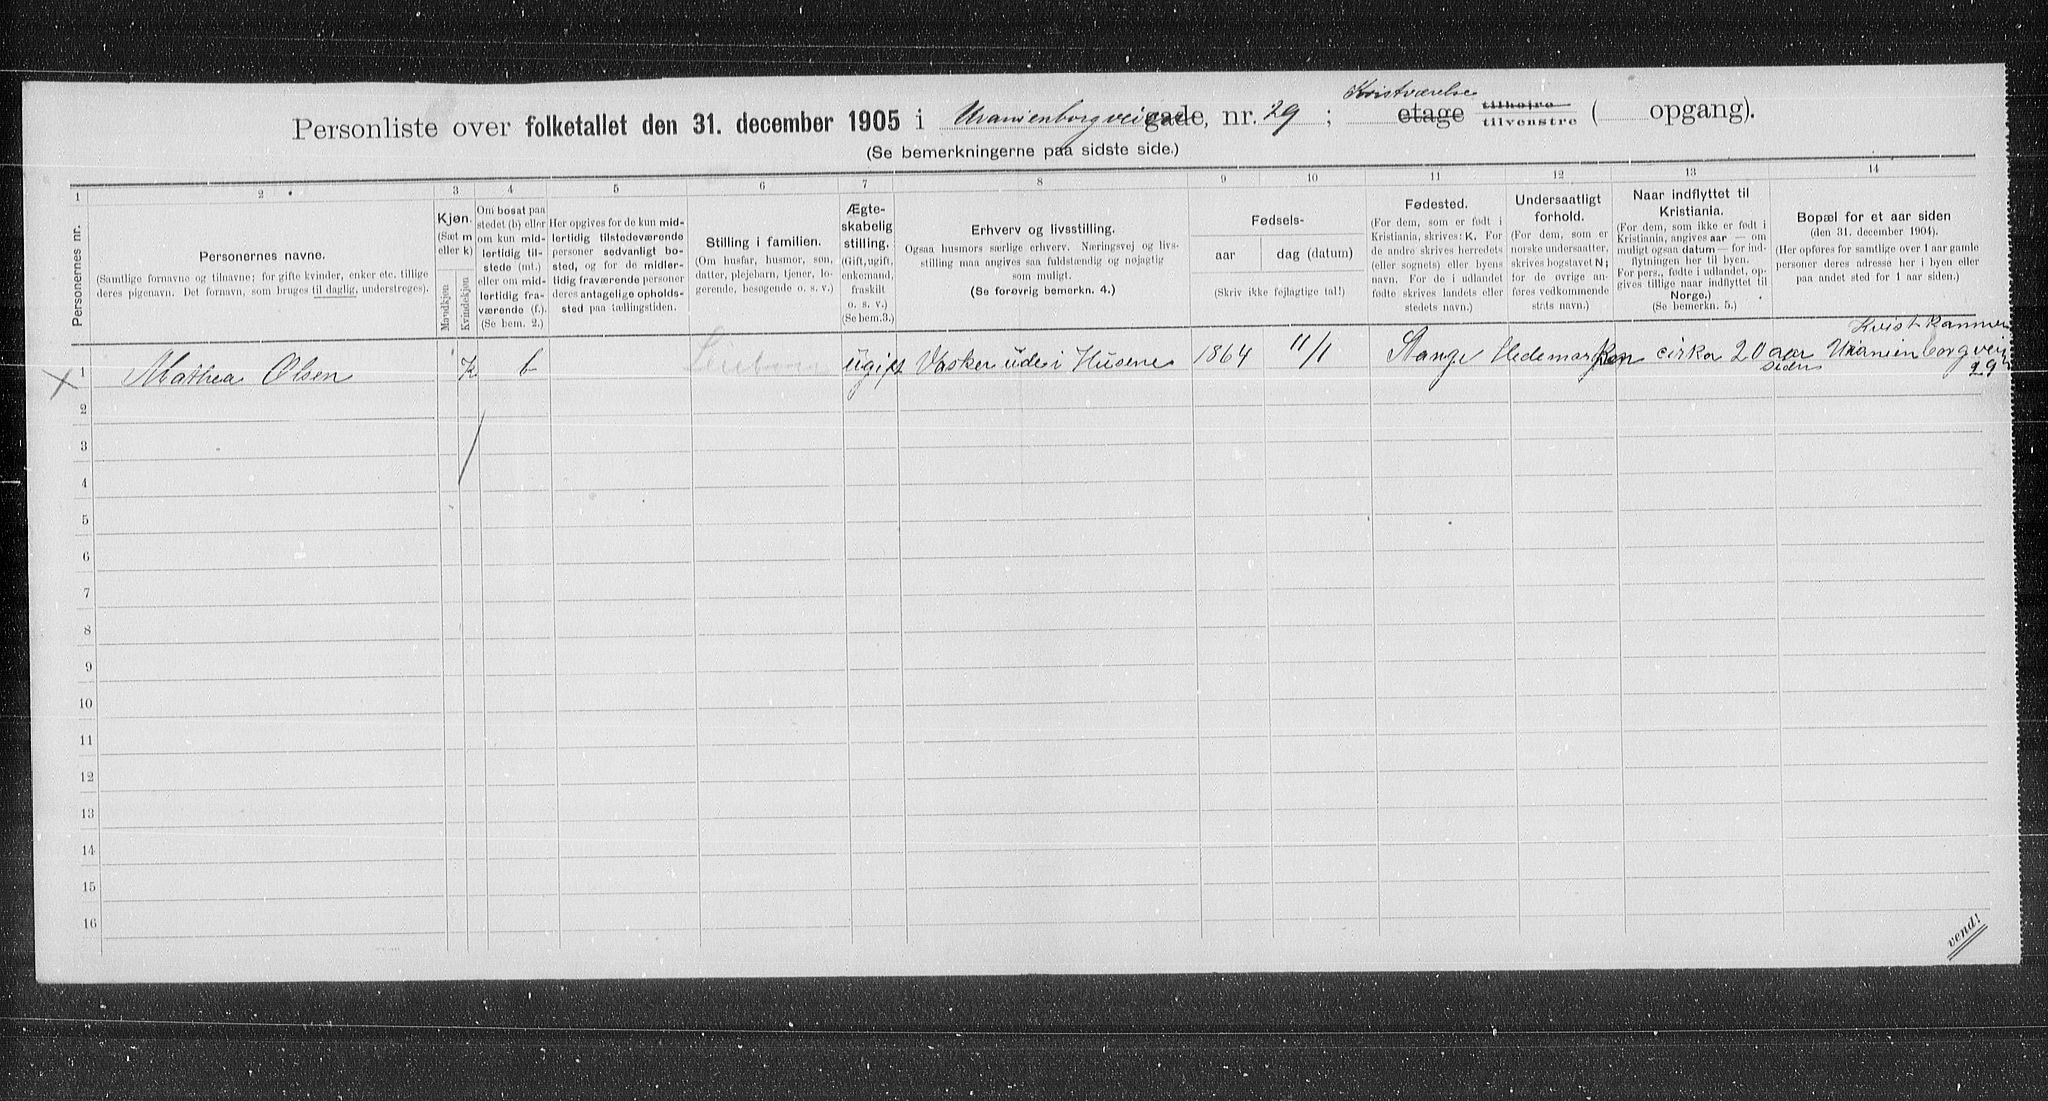 Personliste over folketallet den 31. december 1905 i Uranienborgveien gade, nr. 29 ; Kvistværelse etage tilhøjre tilvenstre ( opgang).
(Se bemerkningerne paa sidste side.)
1 2 3 4 5 6 7 8 9 10 11 12 13 14
Personernes nr.
Personernes navne.
(Samtlige fornavne og tilnavne; for gifte kvinder, enker etc. tillige
deres pigenavn. Det fornavn, som bruges til daglig, understreges).
Kjøn.
(Sæt m
eller k)
Mandkjøn
Kvindekjøn
Om bosat paa
stedet (b) eller
om kun mid-
lertidig til-
stede (mt.)
eller om mid-
lertidig fra-
værende (f.).
(Se bem. 2.)
Her opgives for de kun mid-
lertidig tilstedeværende
personer sedvanligt bo-
sted, og for de midler-
tidig fraværende personer
deres antagelige opholds-
sted paa tællingstiden.
Stilling i familien.
(Om husfar, husmor, søn,
datter, plejebarn, tjener, lo-
gerende, besøgende o. s. v.)
Ægte-
skabelig
stilling.
(Gift, ugift,
enkemand,
fraskilt
o. s. v.)
(Se bem.3.)
Erhverv og livsstilling.
Ogsaa husmors særlige erhverv. Næringsvej og livs-
stilling maa angives saa fuldstændig og nøjagtig
som muligt.
(Se forøvrig bemerkn. 4.)
Fødsels-
aar
dag (datum)
(Skriv ikke fejlagtige tal!)
Fødested.
(For dem, som er født i
Kristiania, skrives: K. For
de andre skrives herredets
(eller sognets) eller byens
navn. For de i udlandet
fødte skrives landets eller
stedets navn.)
Undersaatligt
forhold.
(For dem, som er
norske undersaatter,
skrives bogstavet N;
for de øvrige an-
føres vedkommende
stats navn.)
Naar indflyttet til
Kristiania.
(For dem, som ikke er født i
Kristiania, angives aar — om
muligt ogsaa datum — for ind-
flytningen her til byen.
For pers., fødte i udlandet, op-
gives tillige naar indflyttet til
Norge.)
(Se bemerkn. 5.)
Bopæl for et aar siden
(den 31. december 1904).
(Her opføres for samtlige over 1 aar gamle
personer deres adresse her i byen eller
paa andet sted for 1 aar siden.)
X 1 Mathea Olsen k b ugift Vasker ude i Husene 1864 11/1 Stange Hedemarken cirka 20 aar siden Kvistkammer Uranienborgvein 29
2
3
4
5
6
7
8
9
10
11
12
13
14
15
16
vend!